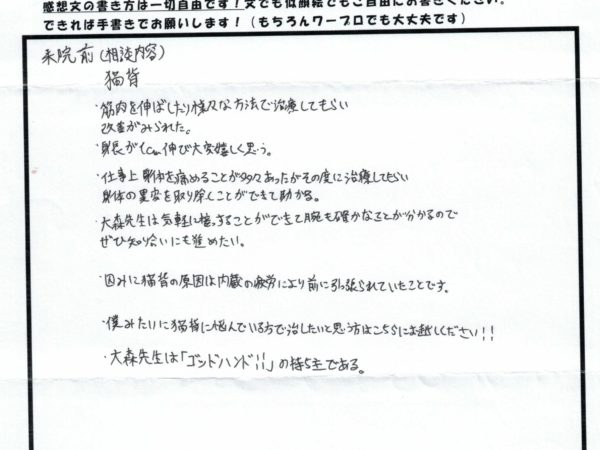 感想文の書き方は一切自由です！文でも似顔絵でもご自由にお書きください。
できれば手書きでお願いします！（もちろんワープロでも大丈夫です）
来院前（相談内容）
猫背
・筋肉を伸ばしたり様々な方法で治療してもらい
改善がみられた。
・身長が1cm伸び大変嬉しく思う。
・仕事上身体を痛めることが多々あったがその度に治療してもらい
身体の異変を取り除くことができて助かる。
・大森先生は気軽に接することができて腕も確かなことが分かるので
ぜひ知り合いにも進めたい。
・因みに猫背の原因は内蔵の疲労により前に引っ張られていたことです。
・僕みたいに猫背に悩んでいる方で治したいと思う方はこちらにお越しください!!
・大森先生は「ゴッドハンド!!」の持ち主である。